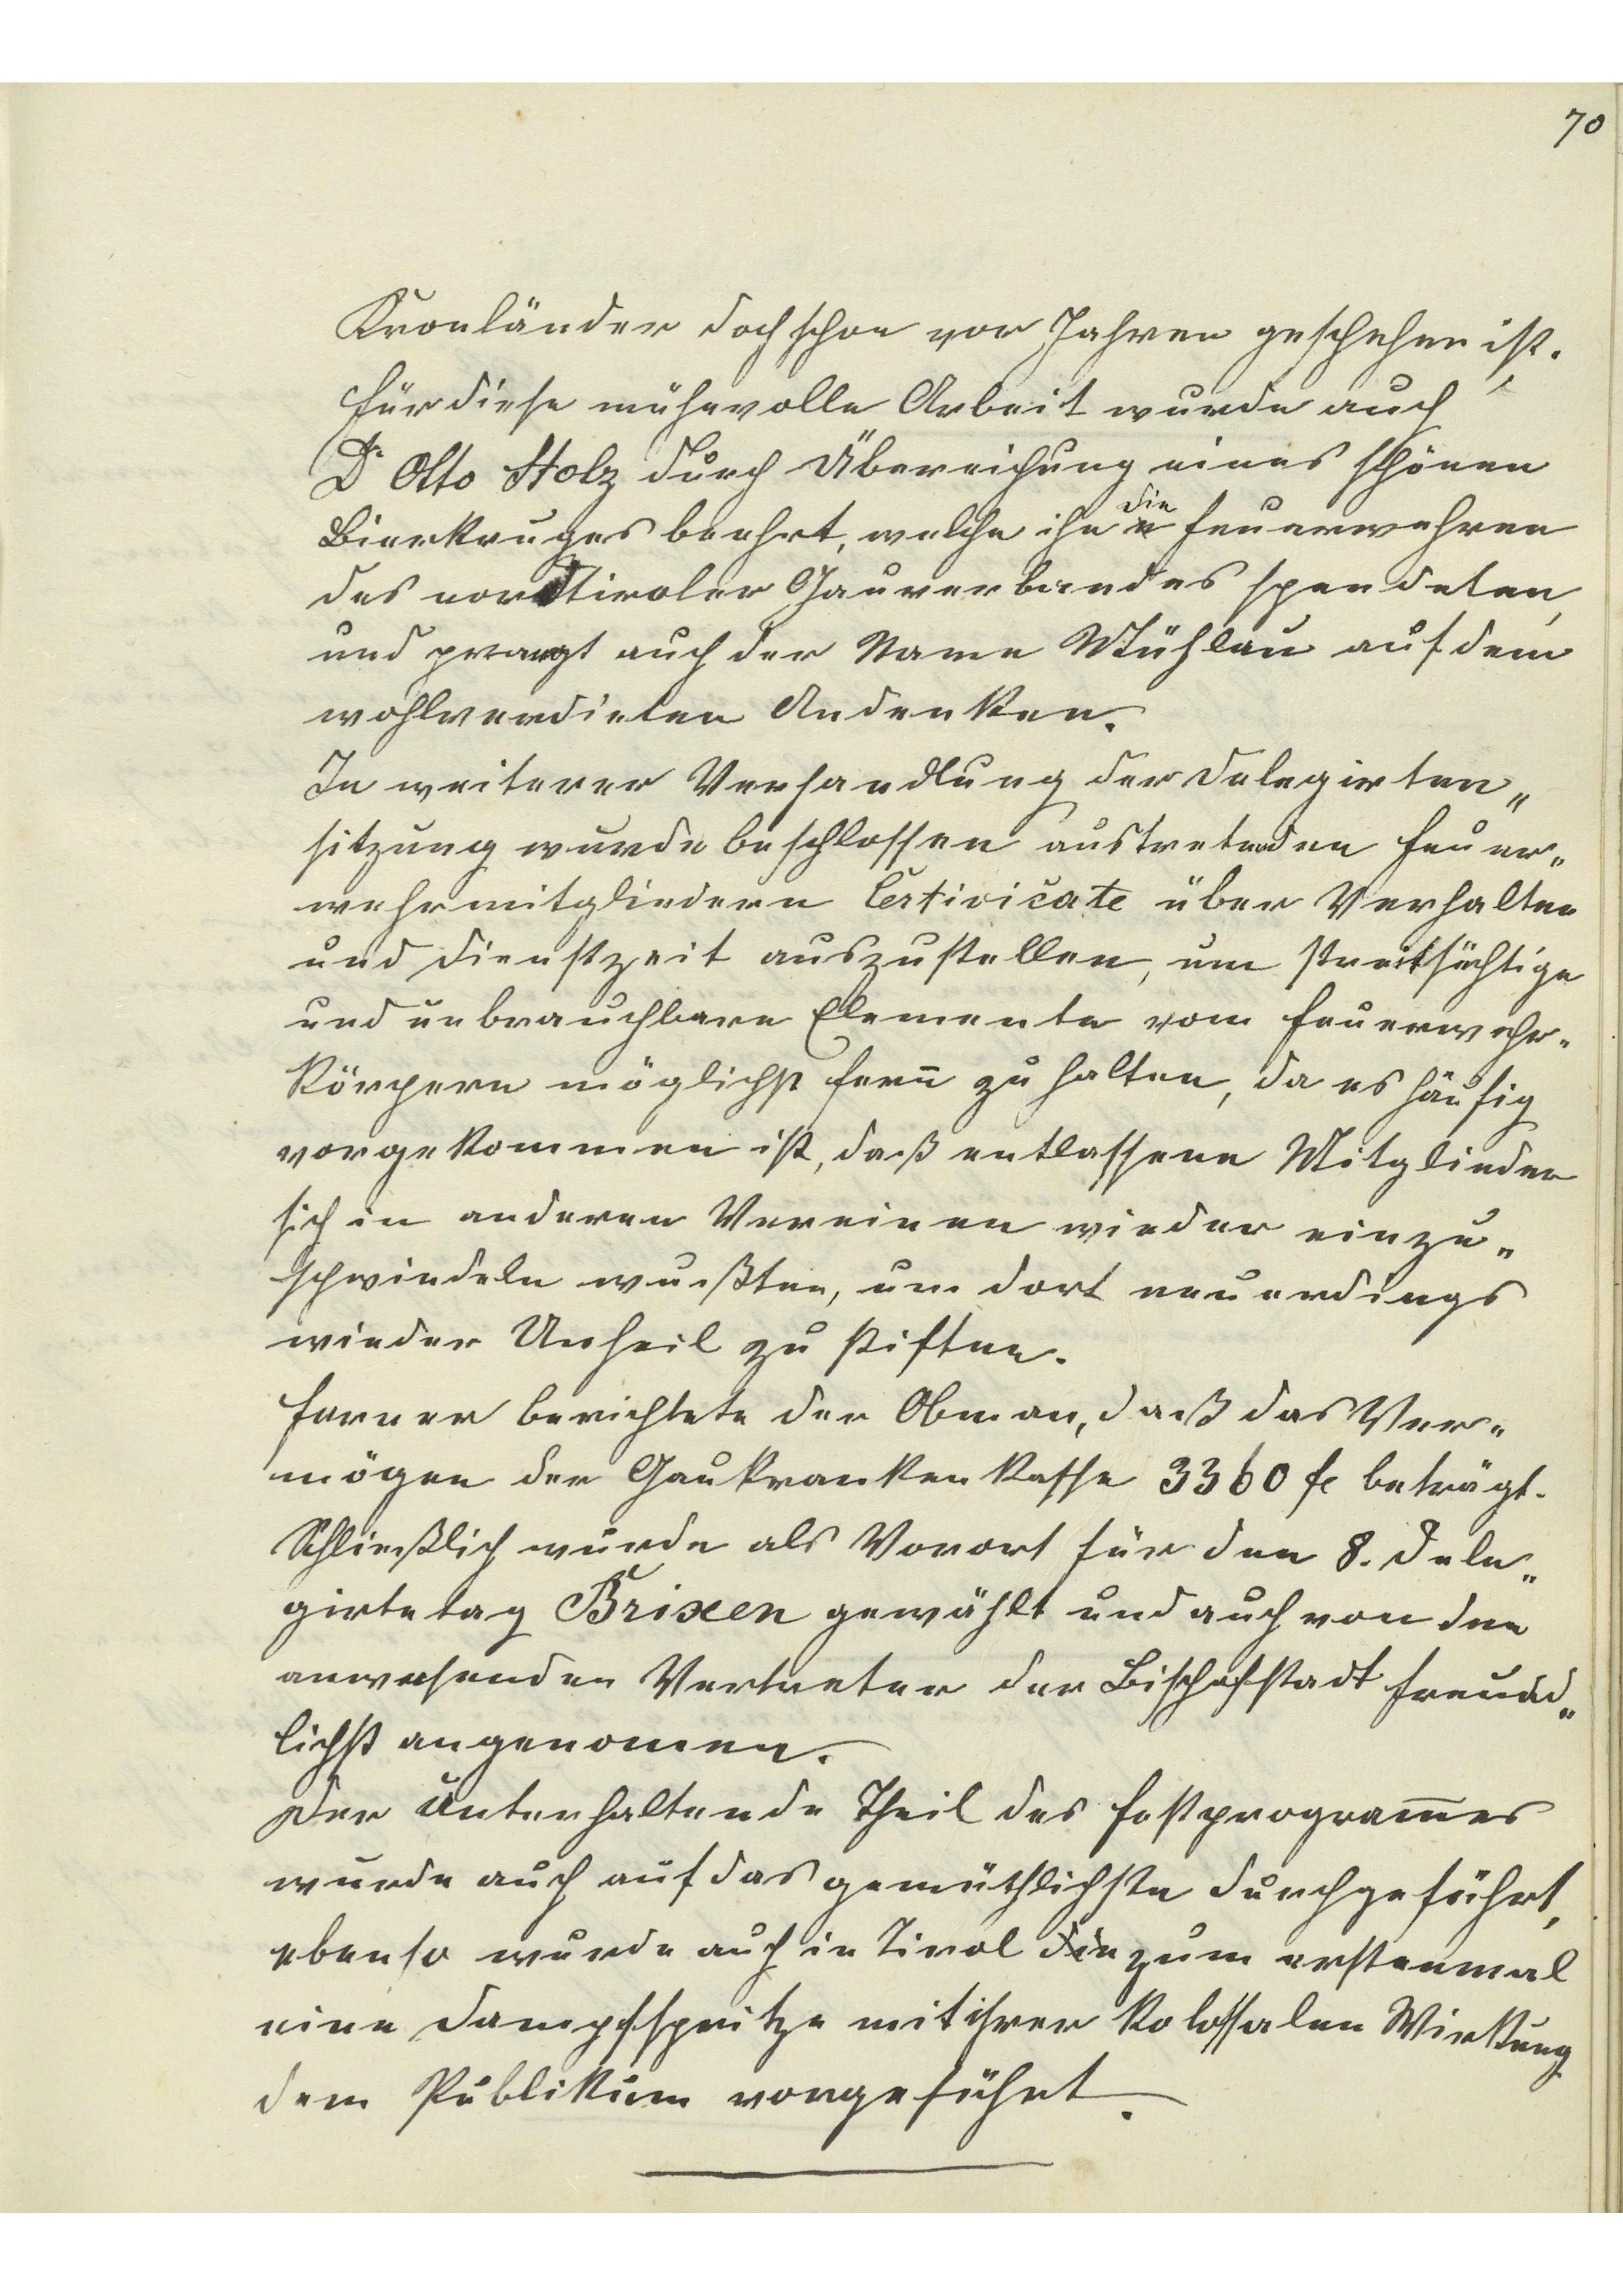 70
Kronländer doch schon vor Jahren geschehen ist.
Für diese mühevolle Arbeit wurde auch
Dr Otto Stolz durch Übereichung eines schönen
Bierkruges beehrt, welche ihn die Feuerwehren
des nordtiroler Gauverbandes spendeten,
und prangt auch der Name Mühlau auf dem
wohlverdieten Andenken.
In weiterer Verhandlung der Delegirten„
sitzung wurde beschlossen austretenden Feuer„
wehrmitgliedern Certivicate über Verhalten
und Dienstzeit auszustellen, um streitsüchtige
und unbrauchbare Elemente vom Feuerwehr„
körpern möglichst fern̅ zu halten, da es häufig
vorgekommen ist, daß entlassene Mitglieder
sich in anderen Vereinen wieder einzu„
schwindeln wußten, um dort neuerdings
wieder Unheil zu stiften.
Ferner berichtete der Obman, daß das Ver„
mögen der Gaukrankenkasse 3360 fl beträgt.
Schließlich wurde als Vorort für den 8. Dele„
girtetag Brixen gewählt und auch von den
anwesenden Vertreter der Bischofstadt freund„
lichst angenomen.
Der Unterhaltende Theil des Festprogram̅es
wurde auch auf das gemüthlichste durchgeführt,
ebenso wurde auch in Tirol die zum erstenmal
eine Dampfspritze mit ihrer kolossalen Wirkung
dem Publikum vorgeführt.